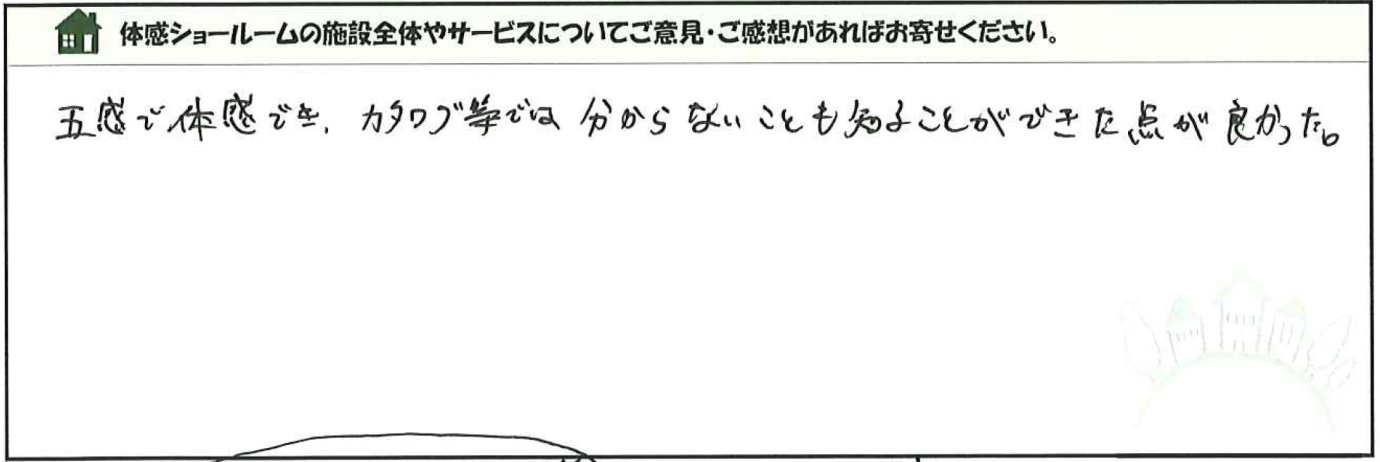 体感ショールームの施設全体やサービスについてご意見・ご感想があればお寄せください。
五感で体感でき、カタログ等では分からないことも知ることができた点が良かった。